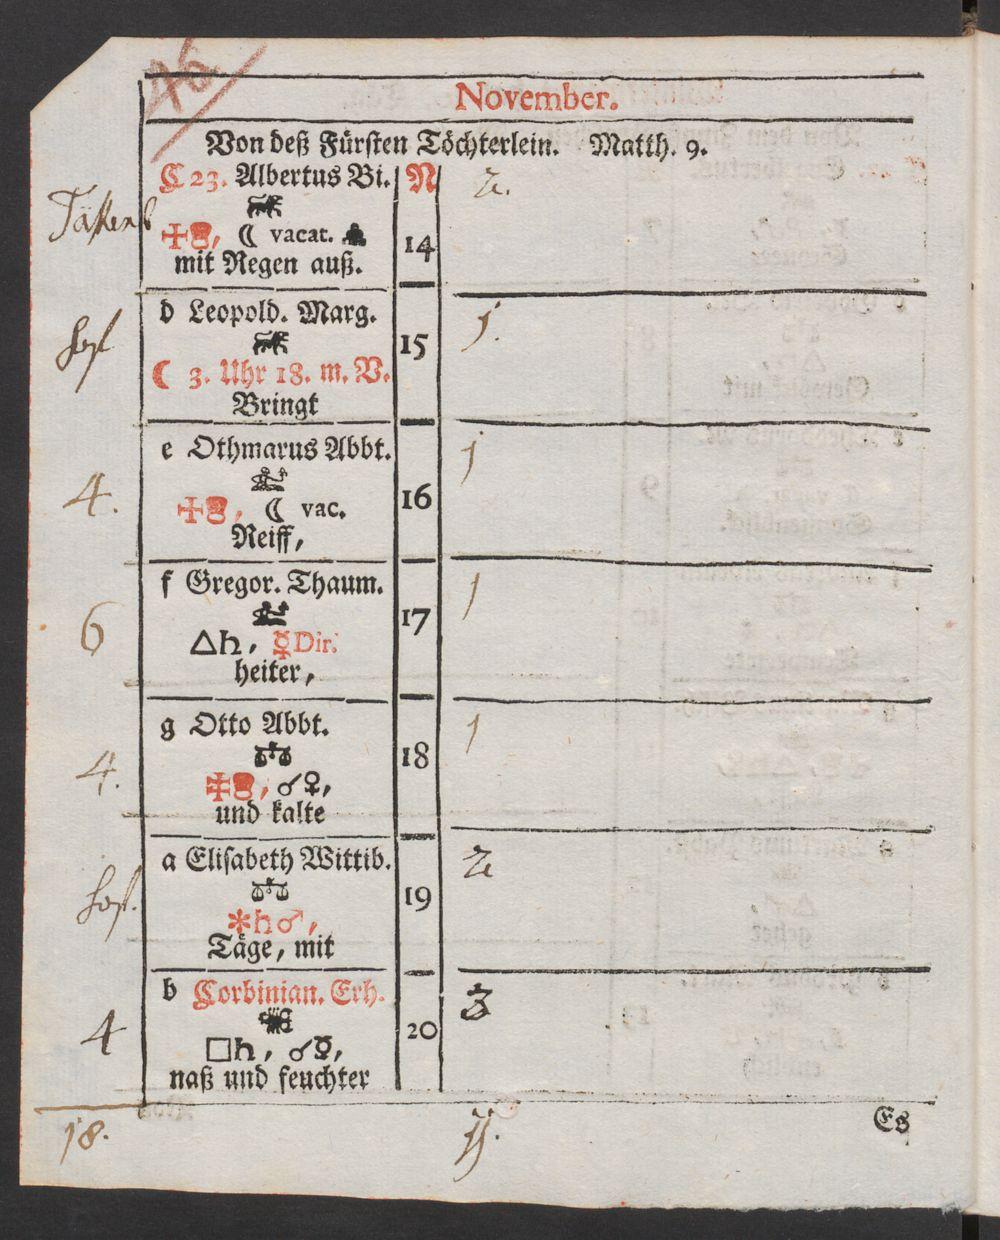 46
November.
Von deß Fürsten Töchterlein. Matth. 9.
C 23. Albertus Bi. N 2.
☾ vacat. 14
mit Regen auß.
d Leopold. Marg.
15 1.
☾ 3. Uhr 18. m. V.
Bringt
e Othmarus Abbt. 1
4. ☾ vac. 16
Reiff,
f Gregor. Thaum. 1
17
6 △♄, ☿Dir.
heiter,
g Otto Abbt. 1
18
4. ☌♀,
und kalte
a Elisabeth Wittib. 2
19
✻♄♂,
Täge, mit
b Corbinian. Erh. 3
4 20
□♄, ☌☿,
naß und feuchter
18. 11.
Es